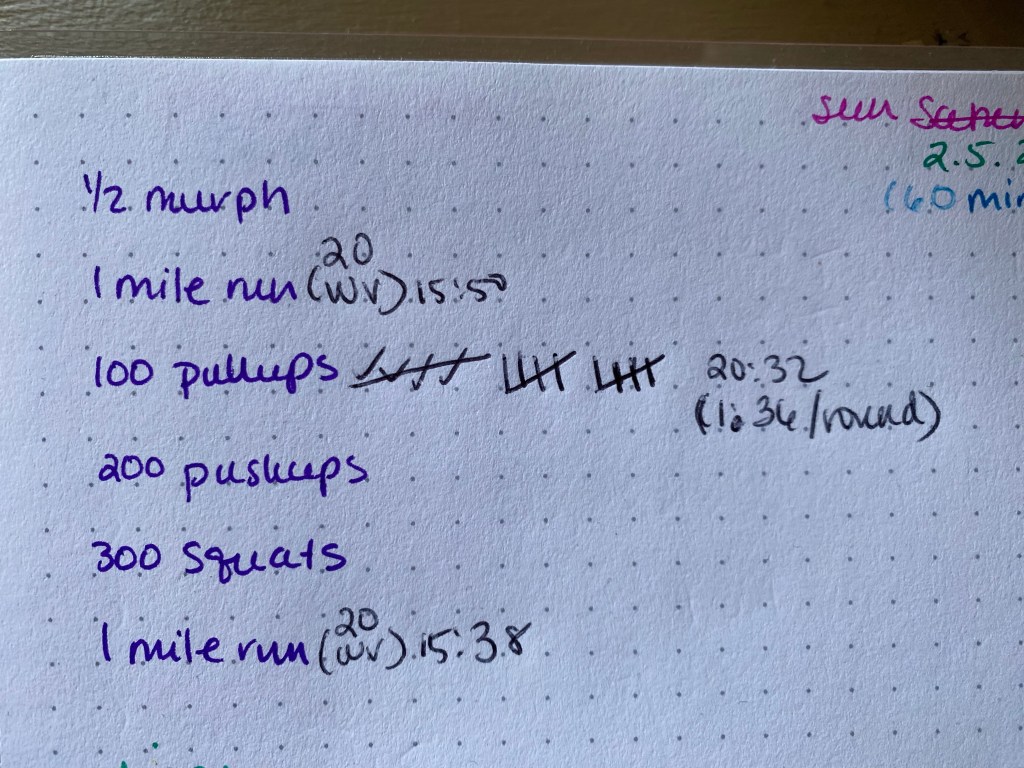 sun
2.5.
(60 min
1/2 murph
1 mile run (20 WV) 15:50
100 pullups 20:32
(1:36/round)
200 pushups
300 squats
1 mile run (20 WV) 15:38